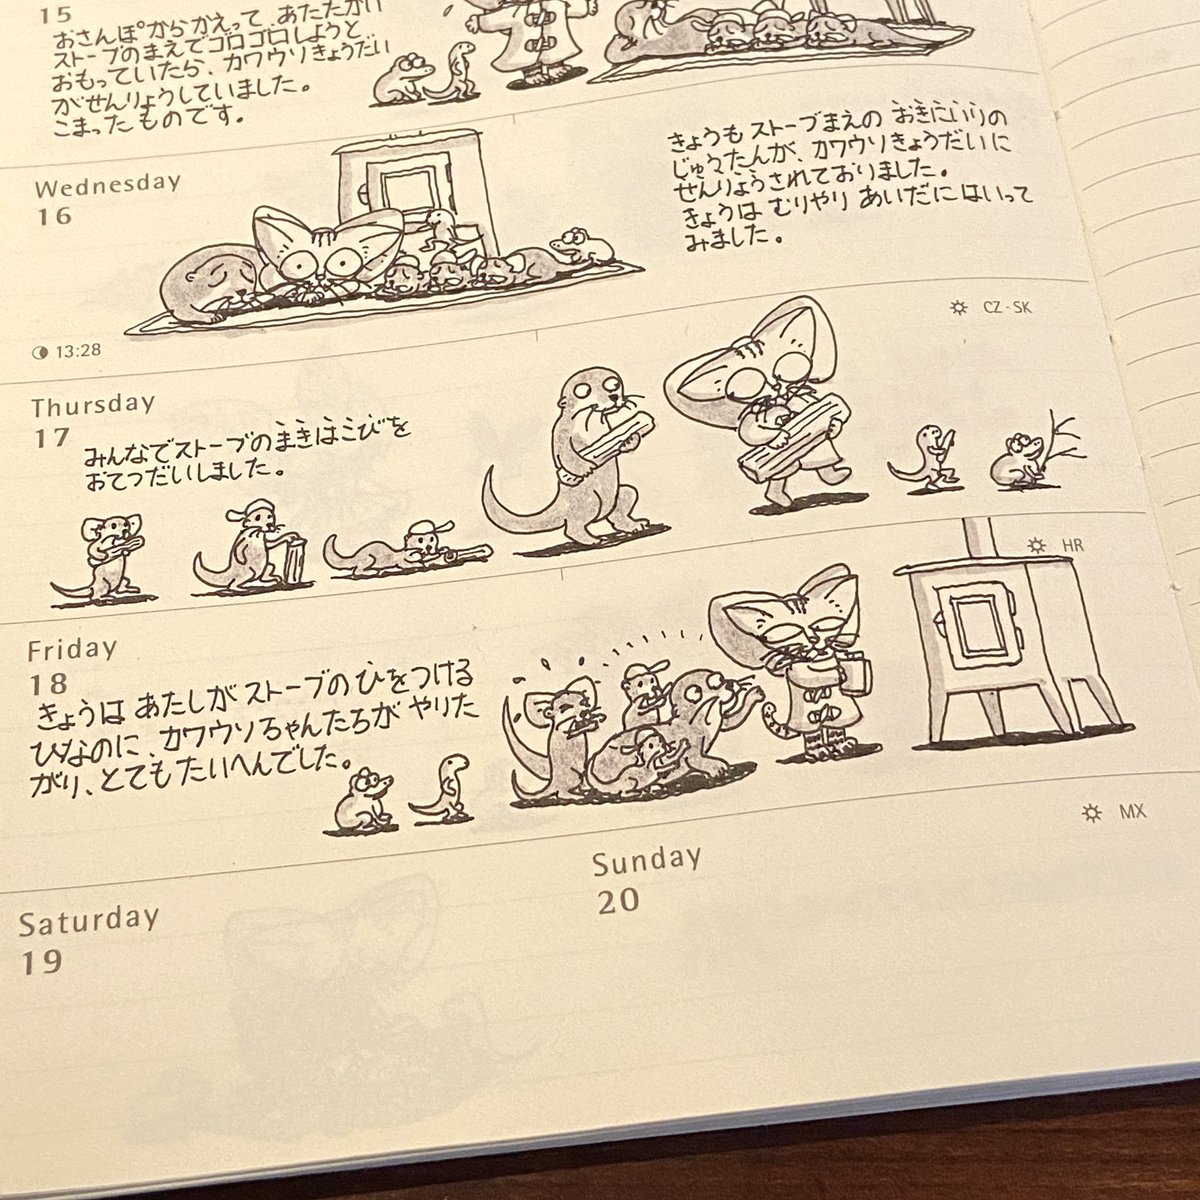 15
おさんぽからかえって、あたたかい
ストーブのまえでゴロゴロしようと
おもっていたら、カワウソきょうだい
がせんりょうしていました。
こまったものです。
Wednesday
16
きょうもストーブまえの おきにいりの
じゅうたんが、カワウソきょうだいに
せんりょうされておりました。
きょうは むりやり あいだにはいって
みました。
13:28
CZ·SK
Thursday
17
みんなでストーブのまきはこびを
おてつだいしました。
HR
Friday
18
きょうは あたしが ストーブの ひをつける
ひなのに、カワウソちゃんたちが やりた
がり、とてもたいへんでした。
MX
Saturday
19
Sunday
20